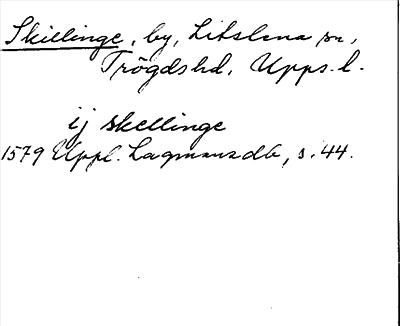 Skillinge, by, Litslena sn,
Trögds hd, Upps. l.
ij skellinge
1579 Uppl. Lagmansdb, s. 44.